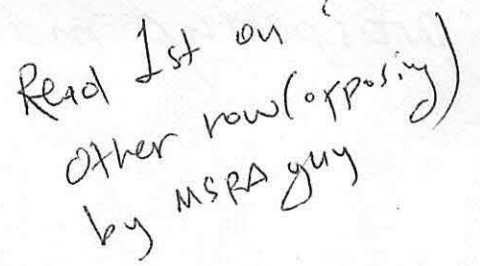 Read 1st on
Other row (opposing)
by MSRA guy